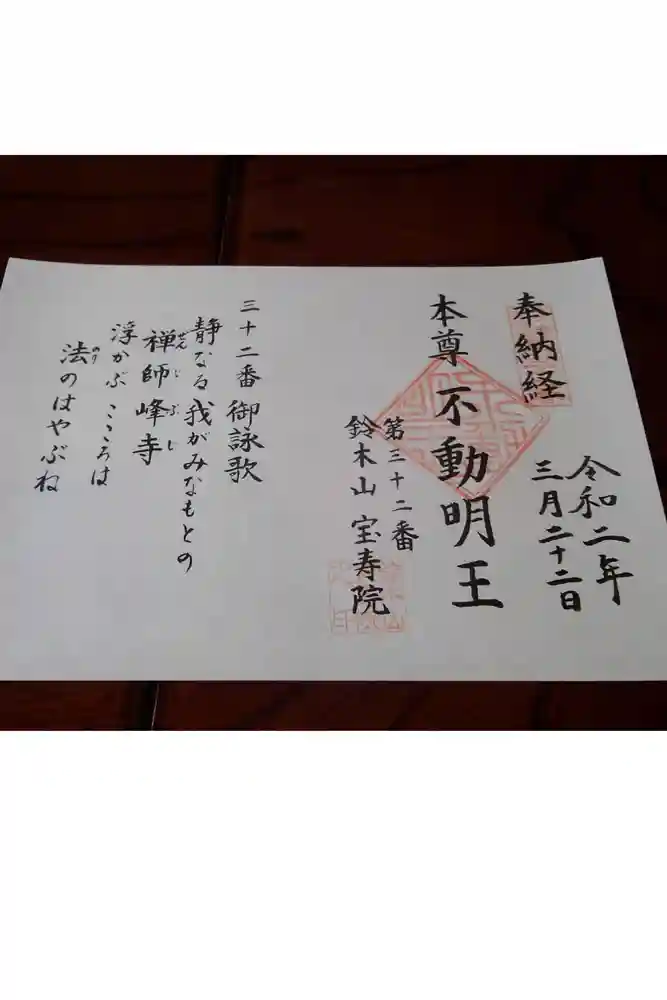 奉納経
令和二年
三月二十二日
本尊 不動明王
第三十二番
鈴木山 宝寿院
三十二番 御詠歌
静なる我がみなもとの
禅師峰寺
ぜんじぶじ
浮かぶこころは
法のはやぶね
のり